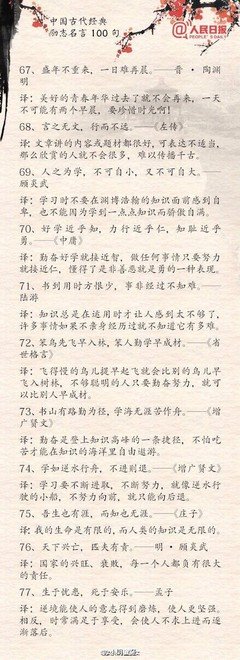 中国古代经典
励志名言100句
@人民日报
PEOPLE'S DAILY
67、盛年不重来，一日难再晨。——晋·陶渊
明
译：美好的青春年华过去了就不会再来，一天
不可能有两个早晨，要珍惜时光啊！
68、言之无文，行而不远。——《左传》
译：文章讲的内容或题材都很好，可表达不适当，
那么欣赏的人就不会很多，难以传播千古。
69、人之为学，不可自小，又不可自大。——
顾炎武
译：学习时不要在渊博浩翰的知识面前感到自
卑，也不能因为学到一点点知识而骄傲自满。
70、好学近乎知，力行近乎仁，知耻近乎
勇。——《中庸》
译：勤奋好学就接近智，做任何事情只要努力
就接近仁，懂得了是非善恶就是勇的一种表现。
71、书到用时方恨少，事非经过不知难。——
陆游
译：知识总是在运用时才让人感到太不够了，
许多事情如果不亲身经历过就不知道它有多难。
72、笨鸟先飞早入林，笨人勤学早成材。——《省
世格言》
译：飞得慢的鸟儿提早起飞就会比别的鸟儿早
飞入树林，不够聪明的人只要勤奋努力，就可
以比别人早成材。
73、书山有路勤为径，学海无涯苦作舟。——《增
广贤文》
译：勤奋是登上知识高峰的一条捷径，不怕吃
苦才能在知识的海洋里自由遨游。
74、学如逆水行舟，不进则退。——《增广贤文》
译：学习要不断进取，不断努力，就像逆水行
驶的小船，不努力向前，就只能向后退。
75、吾生也有涯，而知也无涯。——《庄子》
译：我的生命是有限的，而人类的知识是无限的。
76、天下兴亡，匹夫有责。——明·顾炎武
译：国家的兴旺、衰败，每一个人都负有很大
的责任。
77、生于忧患，死于安乐。——孟子
译：逆境能使人的意志得到磨炼，使人更坚强。
相反，时常满足于享受，会使人不求上进而逐
渐落后。